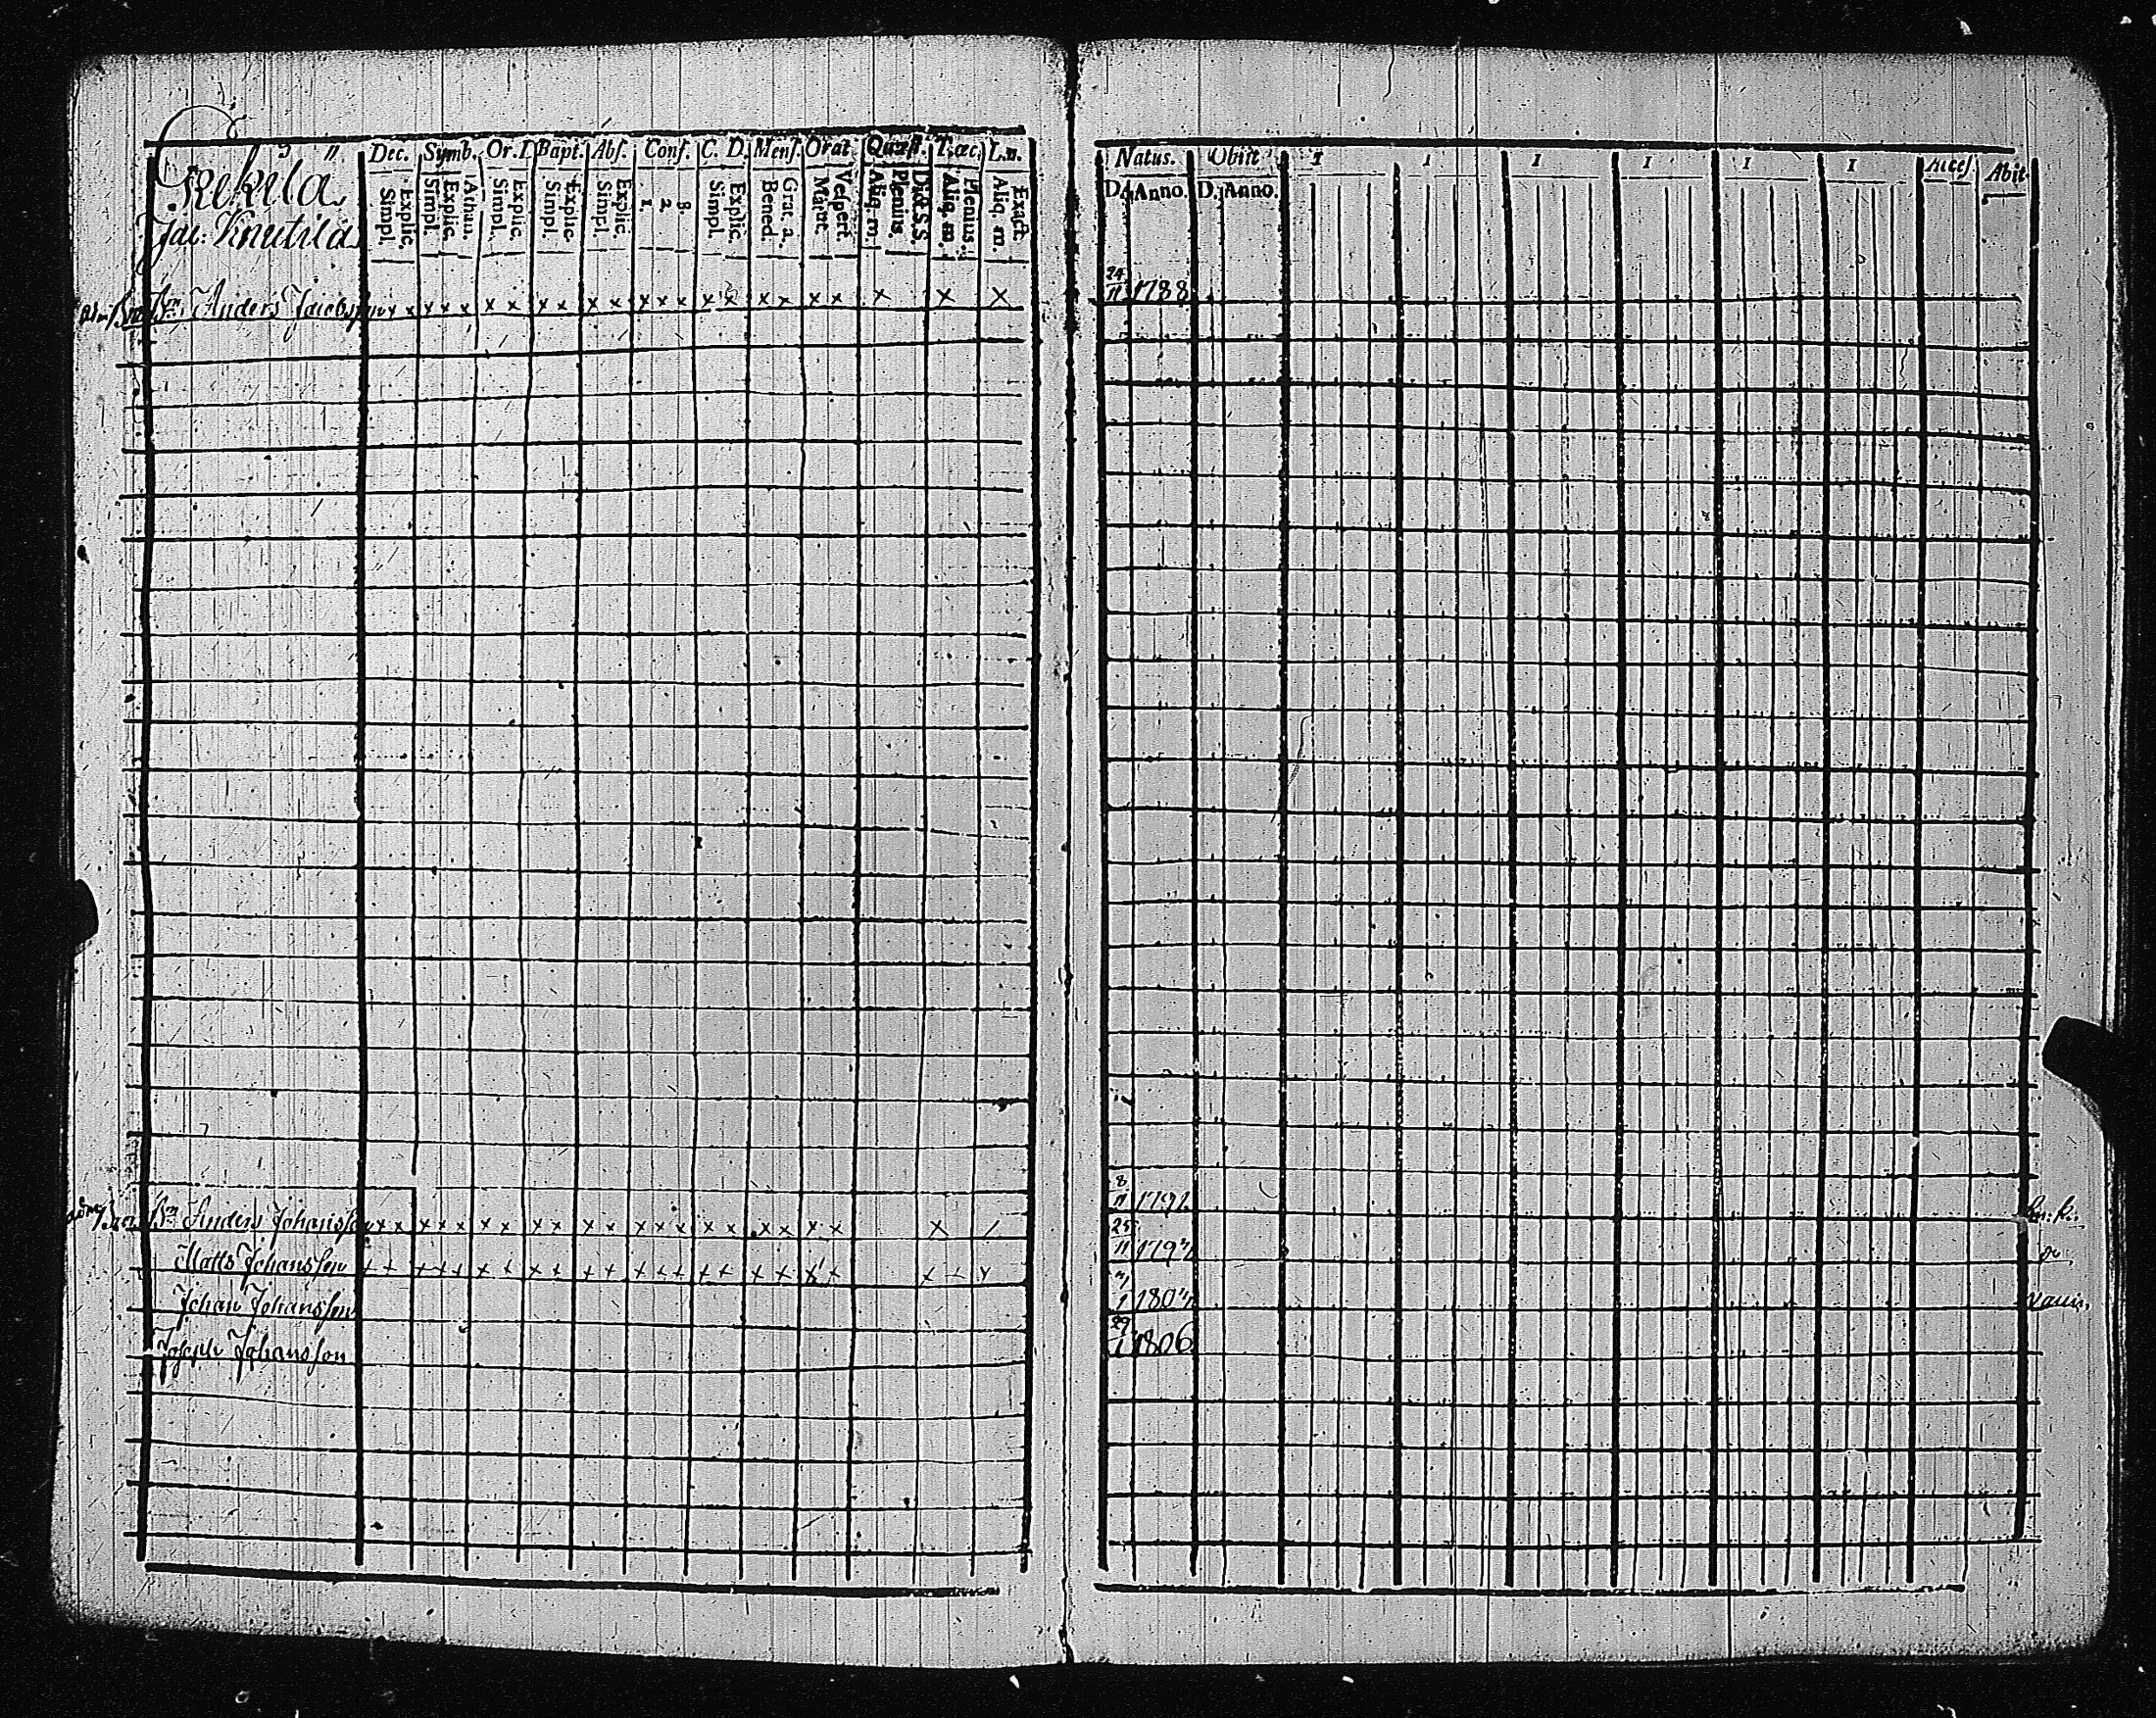 Dec. Symb. Or. D Bapt. Abs. Conf. C. D. Mens. Orat. Quæst. T. œc. L. n.
Simpl. Explic. Simpl. Explic. Athan. Simpl. Explic. Simpl. Explic. Simpl. Explic. 1. 2. 3. Simpl. Explic. Bened. Grat. a. Matut. Vespert. Aliq. m. Plenius. Dict. S. S. Aliq. m. Plenius. Aliq. m. Exact.
Jac: Knutila
Bn Anders Jacobsson x x x x x x x x x x x x x x x x x x x x x x
Bn Anders Johansson x x x x x x x x x x x x x x x x x x x /
Matts Johansson x x x x x x x x x x x x x x x x x x x x
Johan Johansson
Joseph Johansson
Natus. Obiit 1 1 1 1 1 1 Accesf. Abit
D. Anno. D. Anno.
24/11 1788
8/11 1791
25/11 1794
1804
29/1 1806